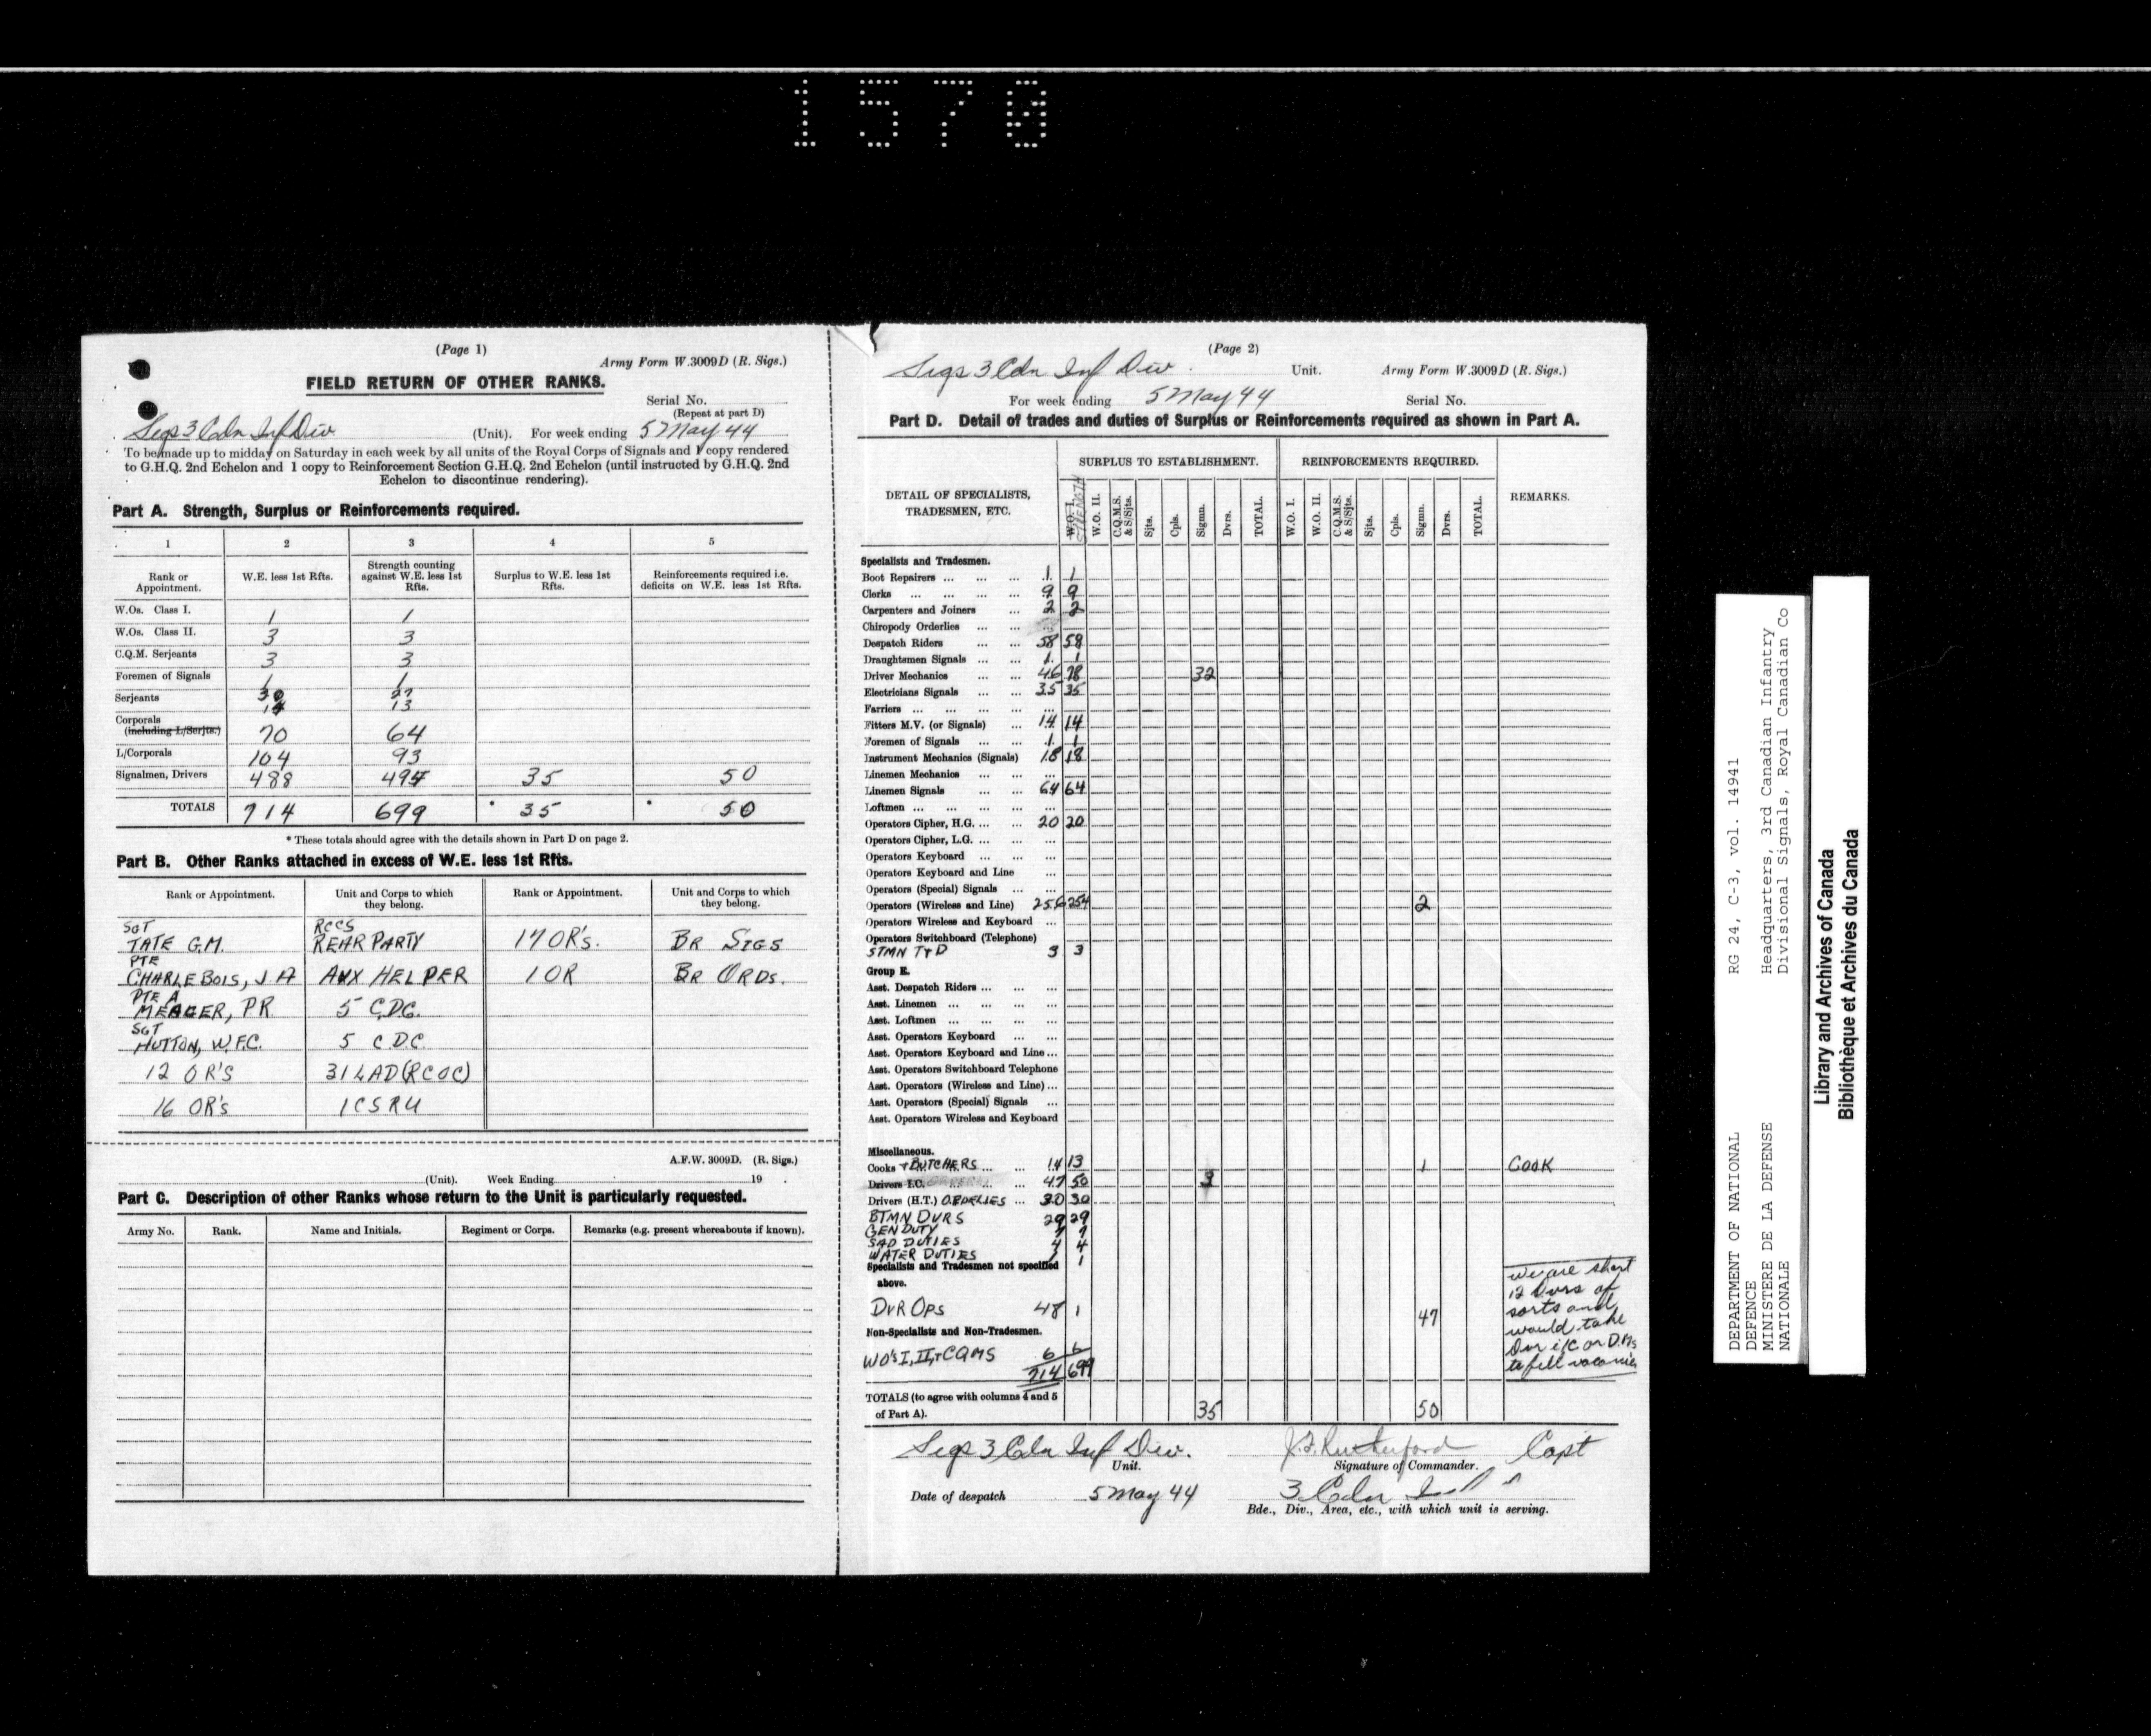 1570
(Page 1)
Army Form W.3009D (R. Sigs.)
FIELD RETURN OF OTHER RANKS.
Serial No.
(Repeat at part D)
Sigs 3 Cdn Inf Div (Unit). For week ending 5 May 44
To be made up to midday on Saturday in each week by all units of the Royal Corps of Signals and 1 copy rendered
to G.H.Q. 2nd Echelon and 1 copy to Reinforcement Section G.H.Q. 2nd Echelon (until instructed by G.H.Q. 2nd
Echelon to discontinue rendering).
Part A. Strength, Surplus or Reinforcements required.
1 2 3 4 5
Rank or Appointment. W.E. less 1st Rfts. Strength counting against W.E. less 1st Rfts. Surplus to W.E. less 1st Rfts. Reinforcements required i.e. deficits on W.E. less 1st Rfts.
W.Os. Class I. 1 1
W.Os. Class II. 3 3
C.Q.M. Serjeants 3 3
Foremen of Signals 1 1
Serjeants 30 27
14 13
Corporals
(including L/Serjts.) 70 64
L/Corporals 104 93
Signalmen, Drivers 488 494 35 50
TOTALS 714 699 * 35 * 50
* These totals should agree with the details shown in Part D on page 2.
Part B. Other Ranks attached in excess of W.E. less 1st Rfts.
Rank or Appointment. Unit and Corps to which they belong. Rank or Appointment. Unit and Corps to which they belong.
SGT RCCS
TATE G.M. REAR PARTY 17 OR's. BR SIGS
PTE
CHARLEBOIS, J A AUX HELPER 1 OR BR ORDS.
PTE A
MEAGER, PR 5 C.D.C.
SGT
HUTTON, W.F.C. 5 C.D.C.
12 OR'S 31 LAD (RCOC)
16 OR's 1 CSRU
A.F.W. 3009D. (R. Sigs.)
(Unit). Week Ending 19 .
Part C. Description of other Ranks whose return to the Unit is particularly requested.
Army No. Rank. Name and Initials. Regiment or Corps. Remarks (e.g. present whereabouts if known).
(Page 2)
Sigs 3 Cdn Inf Div. Unit. Army Form W.3009D (R. Sigs.)
For week ending 5 May 44 Serial No.
Part D. Detail of trades and duties of Surplus or Reinforcements required as shown in Part A.
DETAIL OF SPECIALISTS, TRADESMEN, ETC. SURPLUS TO ESTABLISHMENT. REINFORCEMENTS REQUIRED. REMARKS.
W.O. I. STRENGTH W.O. II. C.Q.M.S. & S/Sjts. Sjts. Cpls. Sigmn. Dvrs. TOTAL. W.O. I. W.O. II. C.Q.M.S. & S/Sjts. Sjts. Cpls. Sigmn. Dvrs. TOTAL.
Specialists and Tradesmen.
Boot Repairers ... ... ... 1 1
Clerks ... ... ... ... 9 9
Carpenters and Joiners ... 2 2
Chiropody Orderlies ... ...
Despatch Riders ... ... 58 58
Draughtsmen Signals ... ... 1 1
Driver Mechanics ... ... 46 78 32
Electricians Signals ... ... 35 35
Farriers ... ... ... ...
Fitters M.V. (or Signals) ... 14 14
Foremen of Signals ... ... 1 1
Instrument Mechanics (Signals) 18 18
Linemen Mechanics ... ...
Linemen Signals ... ... 64 64
Loftmen ... ... ... ...
Operators Cipher, H.G. ... ... 20 20
Operators Cipher, L.G. ... ...
Operators Keyboard ... ... ...
Operators Keyboard and Line ...
Operators (Special) Signals ... ...
Operators (Wireless and Line) 256 254 2
Operators Wireless and Keyboard ...
Operators Switchboard (Telephone)
STMN T+D 3 3
Group E.
Asst. Despatch Riders ... ... ...
Asst. Linemen ... ... ... ...
Asst. Loftmen ... ... ... ...
Asst. Operators Keyboard ... ...
Asst. Operators Keyboard and Line ...
Asst. Operators Switchboard Telephone
Asst. Operators (Wireless and Line) ...
Asst. Operators (Special) Signals ...
Asst. Operators Wireless and Keyboard
Miscellaneous.
Cooks + BUTCHERS ... ... 14 13 1 COOK
Drivers I.C. ... ... 47 50 3
Drivers (H.T.) ORDELIES ... 30 30
BTMN DVRS 29 29
GEN DUTY 7 7
SAD DUTIES 4 4
WATER DUTIES 1 1
Specialists and Tradesmen not specified
above.
DVR OPS 48 1 47
We are short
12 Dvrs of
sorts and
would take
Dvr i/c or D.Ms
to fill vacancies
Non-Specialists and Non-Tradesmen.
WO's I, II, + CQMS 6 6
714 699
TOTALS (to agree with columns 4 and 5
of Part A). 35 50
Sigs 3 Cdn Inf Div. J.F. Rutherford Capt
Unit. Signature of Commander.
Date of despatch 5 May 44 3 Cdn Inf
Bde., Div., Area, etc., with which unit is serving.
RG 24, C-3, vol. 14941
Headquarters, 3rd Canadian Infantry
Divisional Signals, Royal Canadian Co
DEPARTMENT OF NATIONAL
DEFENCE
MINISTERE DE LA DEFENSE
NATIONALE
Library and Archives of Canada
Bibliothèque et Archives du Canada